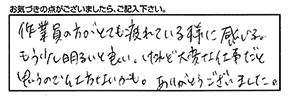 お気づきの点がございましたら、ご記入下さい。
作業員の方がとても疲れている様に感じる。
もう少し明るいと良い。けれど大変な仕事だと
思うので仕方ないかも。ありがとうございました。